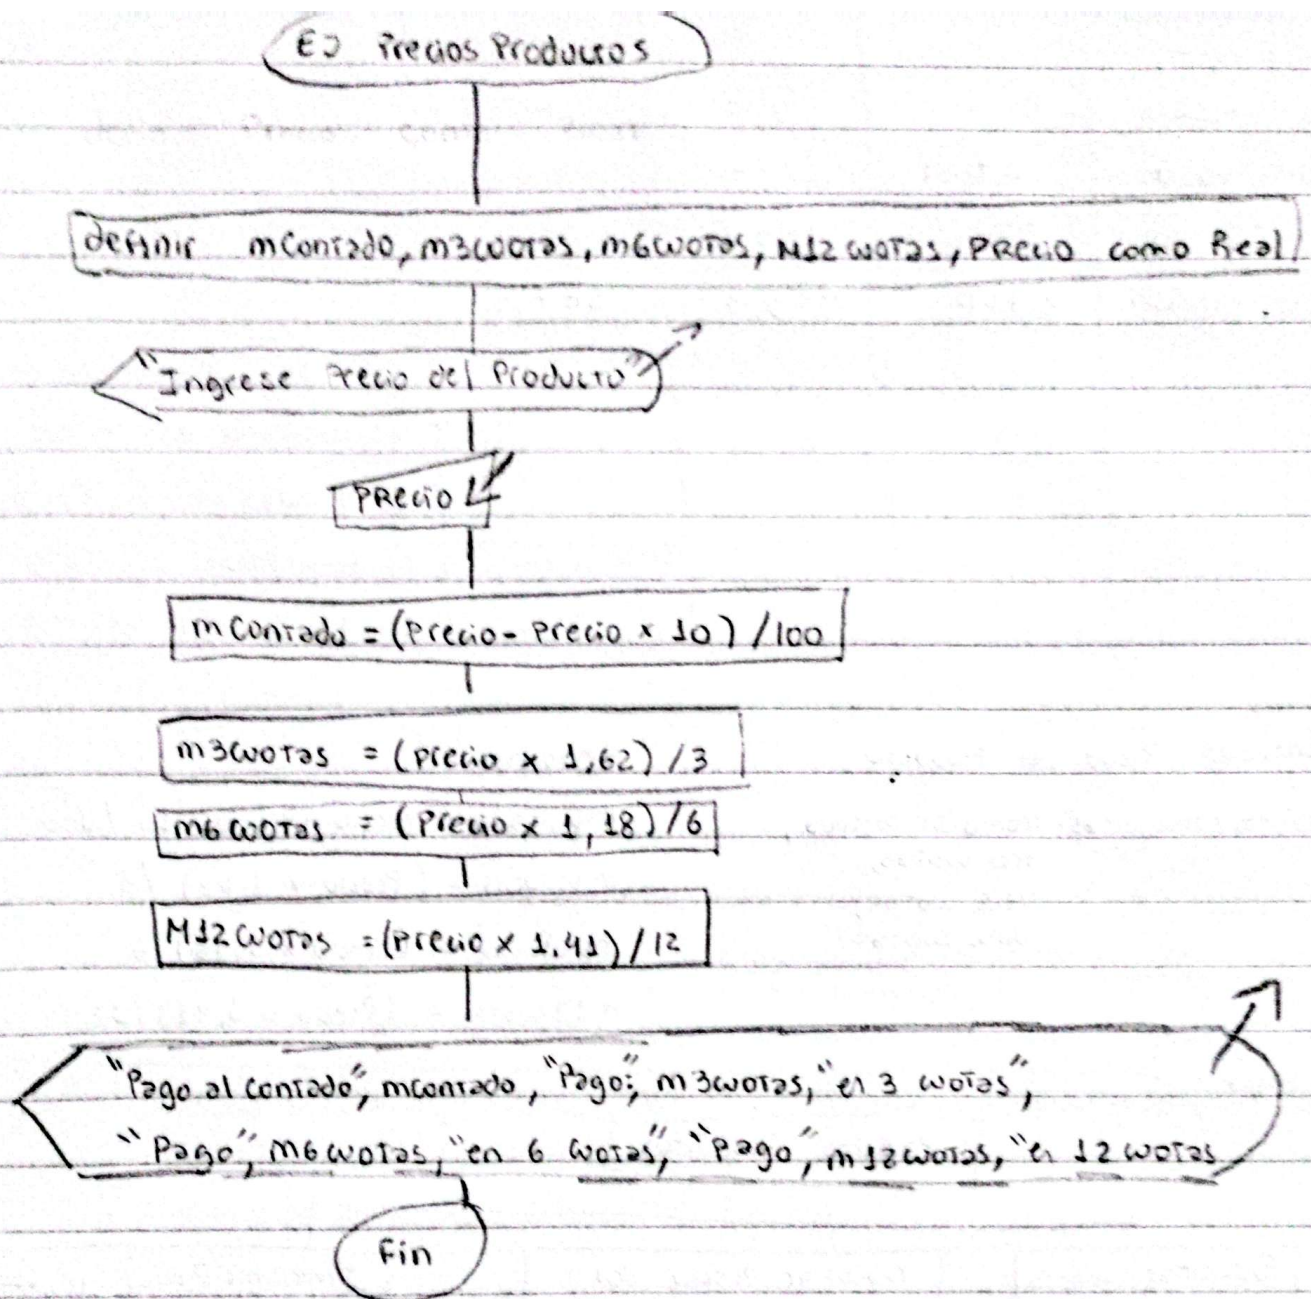 EJ Precios Productos
definir mContado, m3cuotas, m6cuotas, M12cuotas, PRecio como Real
"Ingrese Precio del Producto"
PRecio
mContado = (Precio - Precio x 10) / 100
m3cuotas = (precio x 1,62) / 3
m6cuotas = (Precio x 1,18) / 6
M12cuotas = (Precio x 1.41) / 12
"Pago al Contado", mcontado, "Pago", m3cuotas, "en 3 cuotas",
"Pago", m6cuotas, "en 6 cuotas", "Pago", m12cuotas, "en 12 cuotas
Fin